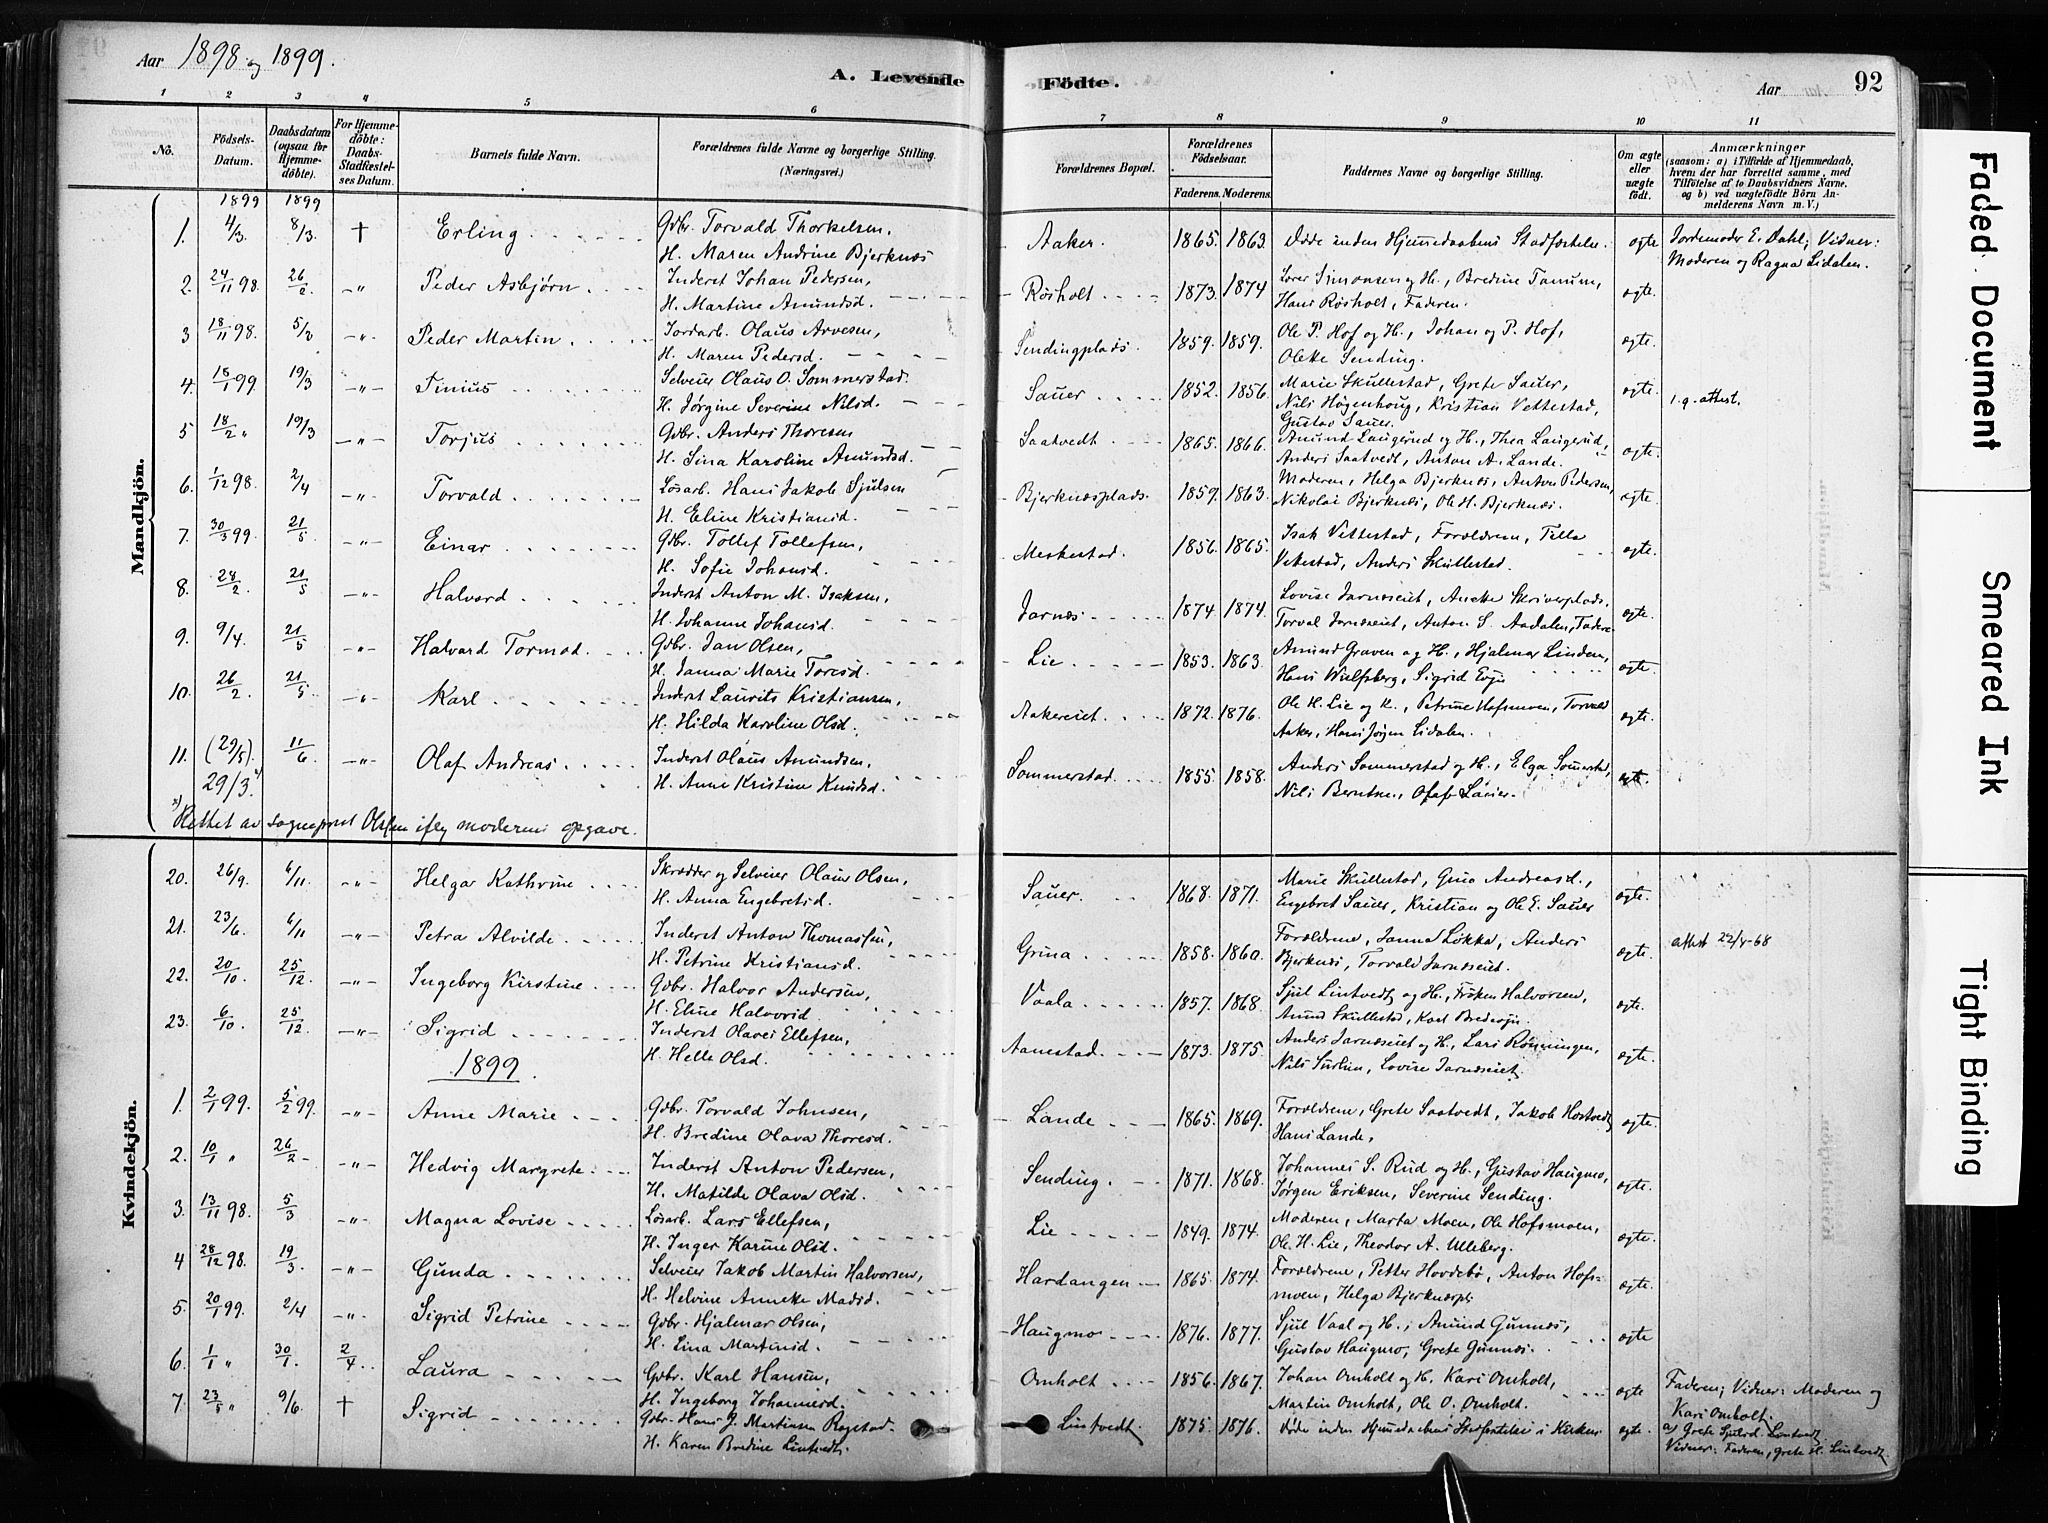 Aar 1898 og 1899.
A. Levende Födte.
Aar 92
1 2 3 4 5 6 7 8 9 10 11
No. Födsels-Datum. Daabsdatum (ogsaa for Hjemmedöbte). For Hjemmedöbte: Daabs-Stadfæstelses Datum. Barnets fulde Navn. Forældrenes fulde Navne og borgerlige Stilling. (Næringsvei.) Forældrenes Bopæl. Forældrenes Födselsaar. Faderens. Moderens. Faddernes Navne og borgerlige Stilling. Om ægte eller uægte födt. Anmærkninger (saasom: a) i Tilfælde af Hjemmedaab, hvem der har forrettet samme, med Tilföielse af to Daabsvidners Navne, og b) ved uægtefödte Börn Anmelderens Navn m. V.)
Mandkjön.
1899 1899
1. 4/3. 8/3. † Erling Gdbr. Torvald Thorkelsen, H. Maren Andrine Bjerknæs Aaker. 1865. 1863. Døde inden Hjemmedaabens Stadfæstelse. ægte Jordemoder E. Dahl; Vidner: Moderen og Ragna Lidalen.
2. 24/11 98. 26/2. -"- Peder Asbjørn Inderst Johan Pedersen, H. Martine Amundsd. Røsholt 1873. 1874 Simonsen og H., Bredine Tanum, Hans Røsholt, Faderen. ægte.
3 18/11 98. 5/3 -"- Peder Martin Jordarb. Olaus Arvesen, H. Maren Pedersd. Sendingplads. 1859. 1859. Ole P. Hof og H., Johan og P. Hof, Oleke Sending. ægte.
4. 18/1 99. 19/3 -"- Tinius Selveier Olaus O. Sommerstad. H. Jørgine Severine Nilsd. Sauer 1852. 1856. Marie Skullestad, Grete Sauer, Nils Høgenhoug, Kristian Vettestad, Gustav Sauer. ægte. attest.
5 18/2 " 19/3 -"- Torjus Gdbr. Anders Thoresen H. Sina Karoline Amundsd. Saatvedt 1865. 1866. Amund Laugerud og H., Thea Laugerud, Anders Saatvedt, Anton A. Lande. ægte.
6. 1/12 98. 2/4 -"- Torvald Løsarb. Hans Jakob Sjulsen H. Eline Kristiansd. Bjerknæsplads. 1859. 1863. Moderen, Helga Bjerknæs, Anton Pedersen, Nikolai Bjerknæs, Ole H. Bjerknæs. ægte.
7. 30/3 99. 21/5 -"- Einar Gdbr. Tollef Tollefsen, H. Sofie Johansd. Meskestad. 1856. 1865. Isak Vettestad, Forældrene, Tilla Vettestad, Anders Skullestad. ægte.
8. 28/2. 21/5 -"- Halvard Inderst Anton M. Isaksen, H. Johanne Johansd. Jarnæs 1874. 1874. Lovise Jarnæseiet, Skriverplads, Torval Jarnæseiet, Anton S. Aadalen, ægte.
9. 9/4. 21/5 -"- Halvard Tormod Gdbr. Jan Olsen, H. Janna Marie Toresd. Lie 1853. 1863. Amund Graven og H., Hjalmar Linden, Hans Wulfsberg, Sigrid Evju ægte.
10. 26/2 21/5 -"- Karl Inderst Laurits Kristiansen, H. Hilda Karoline Olsd. Aakereiet. 1872. 1876. Ole H. Lie og H., Petrine Hofsmoen, Torvald Aaker, Hans Jørgen Lidalen. ægte.
11. (29/5). 11/6 -"- Olaf Andreas Inderst Olaus Amundsen, H. Anne Kristine Knudsd. Sommerstad. 1855. 1858. Anders Sommerstad og H., Elga Sommerstad, Nils Berntsen, Olaf Sauer. ægte.
29/3. x)
x) Rettet av sogneprest Olssen ifølg moderens opgave.
Kvindekjön.
20. 26/9. 6/11. -"- Helga Kathrine Skrædder og Selveier Olaus Olsen, H. Anna Engebretsd. Sauer. 1868. 1871. Marie Skullestad, Gina Andreasd., Engebret Sauer, Kristian og Ole E. Sauer ægte.
21. 23/6. 6/11 -"- Petra Alvilde Inderst Anton Thomassen, H. Petrine Kristiansd. Grina 1858. 1860. Forældrene, Janna Løkka, Anders Bjerknæs, Torvald Jarnæseiet. ægte. attest 22/4-68
22. 20/10. 25/12. -"- Ingeborg Kirstine Gdbr. Halvor Andersen, H. Eline Halvorsd. Vaala 1857. 1868. Sjul Lintvedt og H., Frøken Halvorsen, Amund Skullestad, Karl ægte.
23. 6/10 25/12 -"- Sigrid Inderst Olaves Ellefsen, H. Helle Olsd. Aanestad. 1873. 1875. Anders Jarnæseiet og H., Lars Rønningen, Nils Lovise Jarnæseiet. ægte.
1899.
1. 2/1 99. 5/2 99. -"- Anne Marie Gdbr. Torvald Johnsen, H. Bredine Olava Thoresd. Lande 1865. 1869. Forældrene, Grete Saatvedt, Jakob Hostvedt, Hans Lande, ægte.
2. 10/1 " 26/2 -"- Hedvig Margrete. Inderst Anton Pedersen, H. Matilde Olava Olsd. Sending. 1871. 1868. Johannes S. Rud og H., Gustav Haugmo, Jørgen Eriksen, Severine Sending. ægte.
3. 13/11 98. 5/3 -"- Magna Lovise Løsarb. Lars Ellefsen, H. Inger Karine Olsd. Lie 1849. 1874. Moderen, Marta Moen, Ole Hofsmoen, Ole H. Lie, Theodor A. Ulleberg. ægte.
4 28/12 98. 19/3. -"- Gunda Selveier Jakob Martin Halvorsen, H. Helvine Anneke Madsd. Hardangen 1865. 1874. Forældrene, Petter Hovdebø, Anton Hofsmoen, Helga Bjerknæspl. ægte.
5. 20/1 99. 2/4 -"- Sigrid Petrine Gdbr. Hjalmar Olsen, H. Lina Martinsd. Haugmo 1876. 1877. Sjul Vaal og H., Amund Gunnæs, Gustav Haugmo, Grete Gunnæs. ægte
6. 1/1 " 30/1. 2/4 Laura Gdbr. Karl Hansen, H. Ingeborg Johannesd. Omholt 1856. 1867. Johan Omholt og H. Kari Omholt, Martin Omholt, Ole O. Omholt. ægte Faderen; Vidner: Moderen og Kari Omholt.
7. 23/5 " 9/6. † Sigrid Gdbr. Hans J. Martinsen Rogstad. H. Karen Bredine Lintvedt. Lintvedt 1875. 1876. Døde inden Hjemmedaabens Stadfæstelse i Kirken ægte. a) Grete Sjulsd. Lintvedt, Vidner: Faderen, Grete H. Lintvedt.
Faded Document
Smeared Ink
Tight Binding